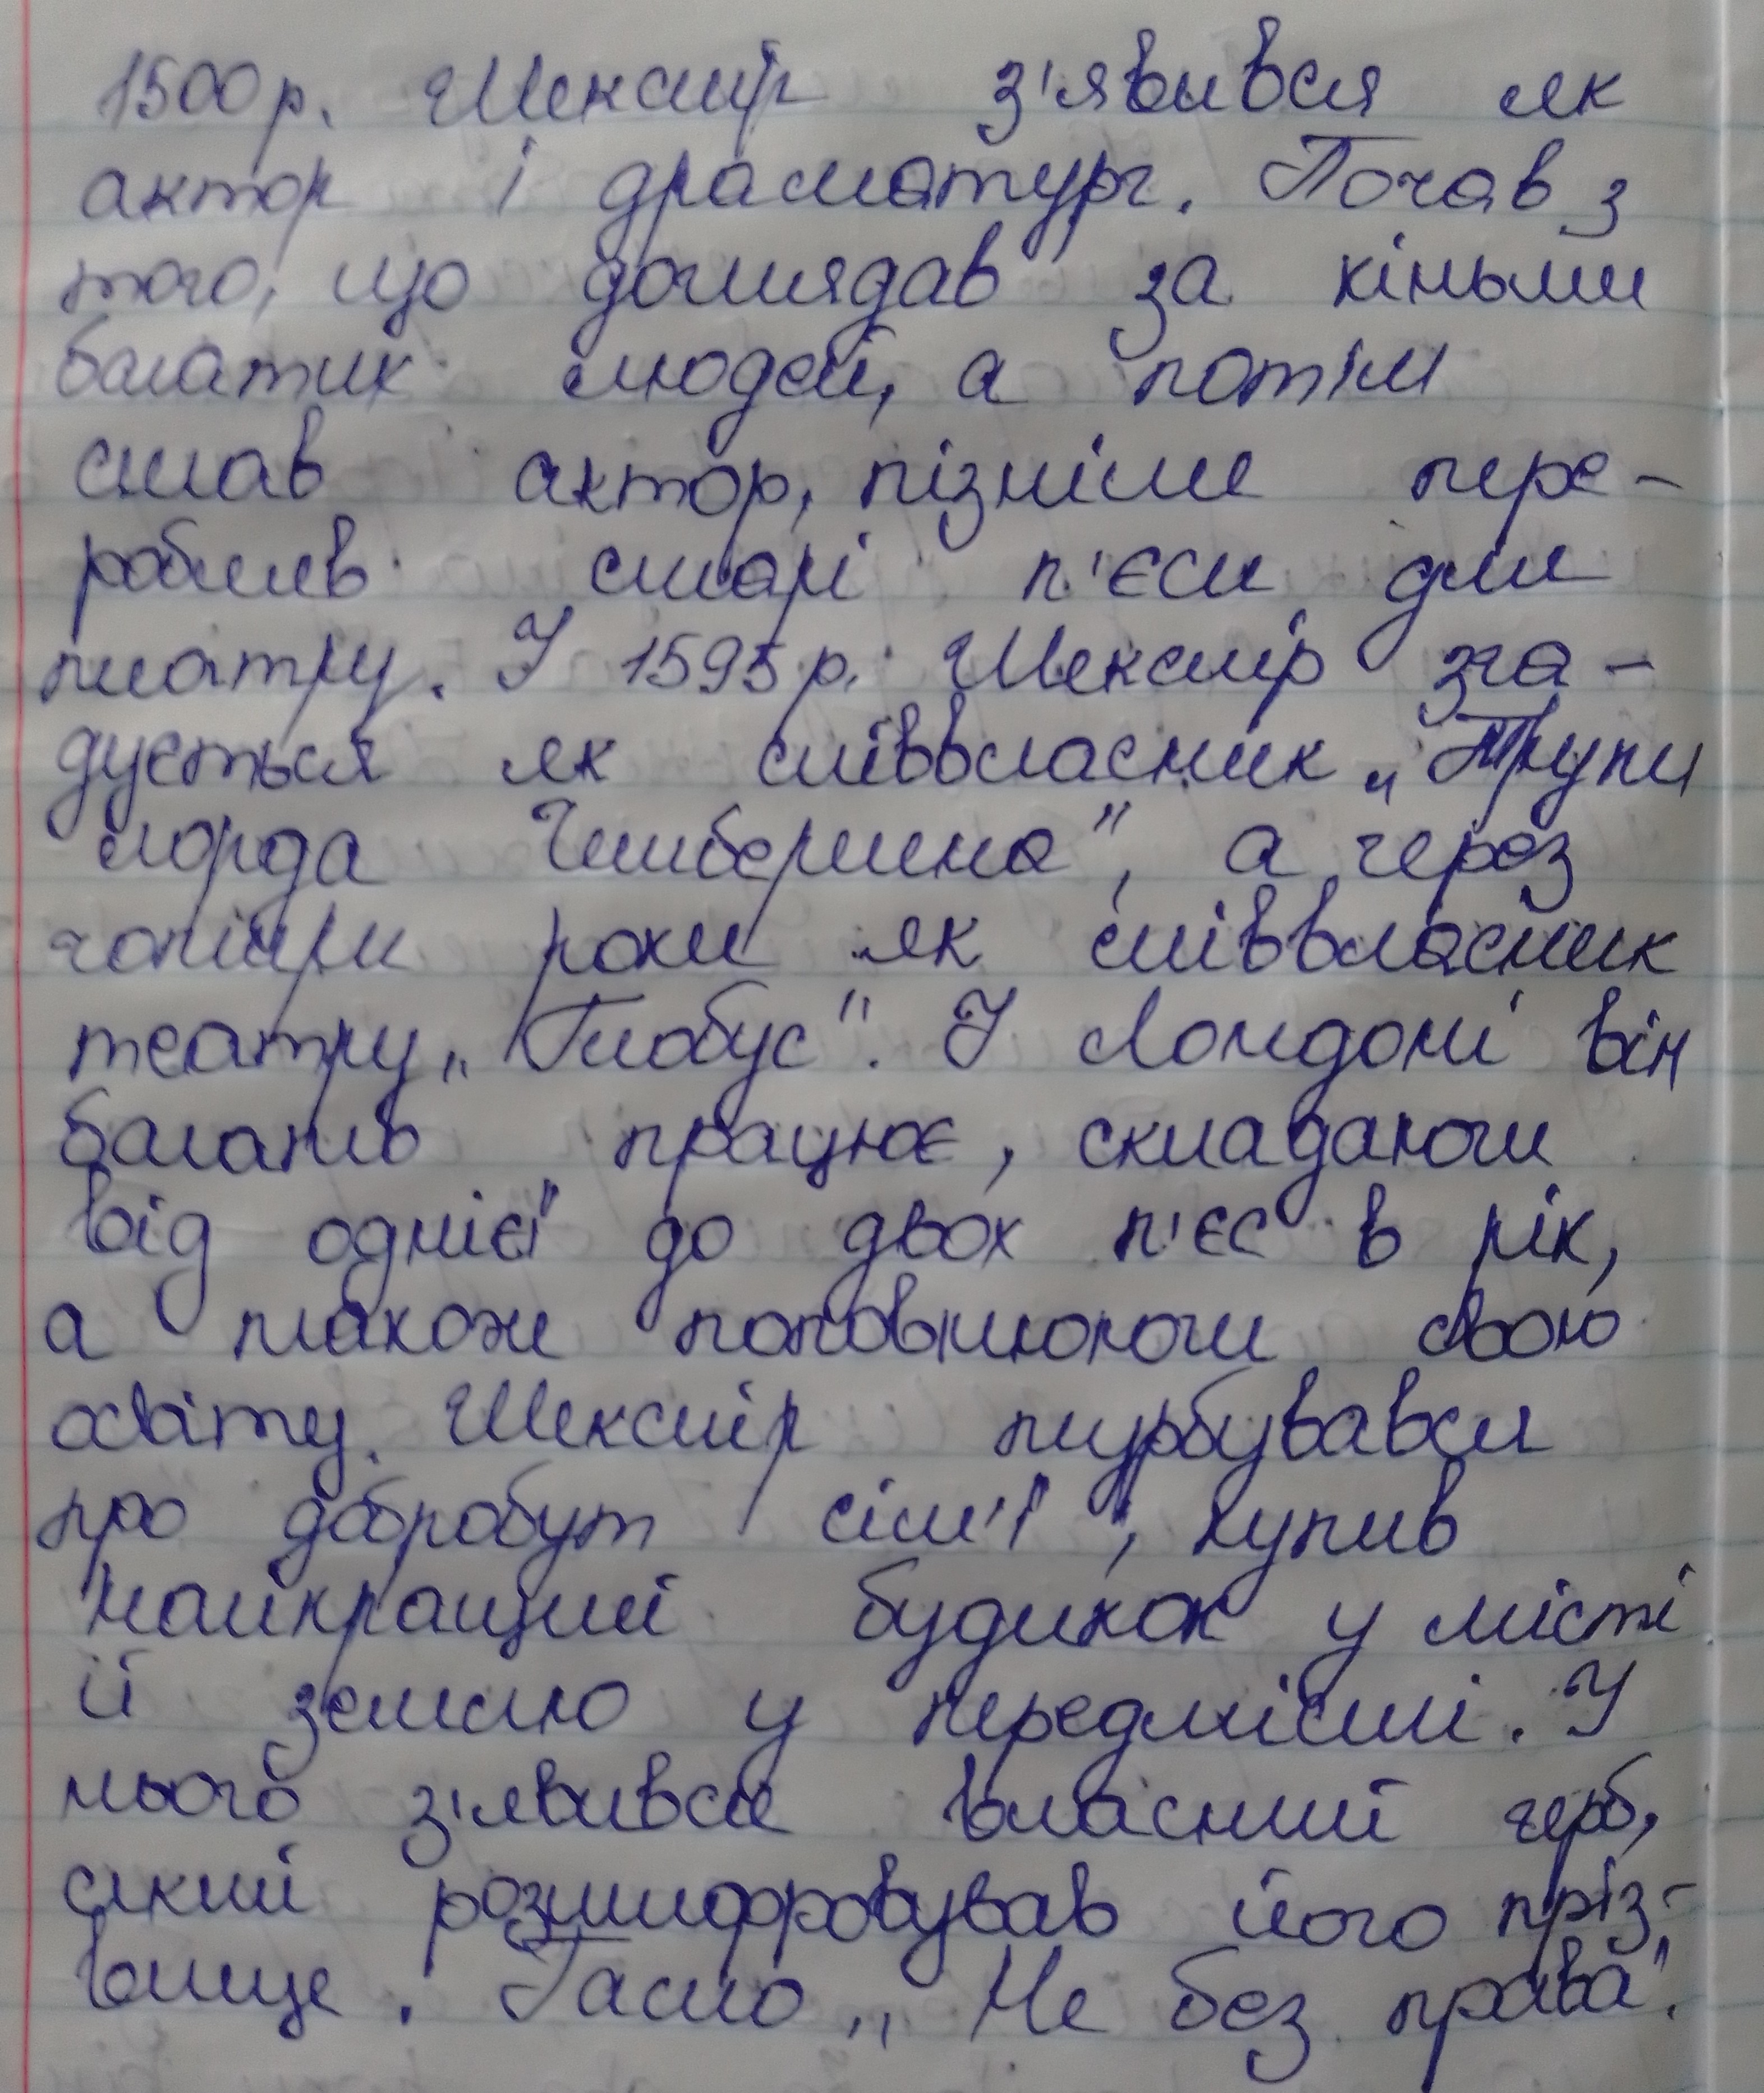 1500р. Шекспір з'явився як
актор і драматург. Почав з
того, що доглядав за кіньми
багатих людей, а потім
став актор, пізніше пере-
робляв старі п'єси для
театру. У 1595р. Шекспір зга-
дується як співвласник „Трупи
лорда Чемберлена", а через
чотири роки як співвласник
театру „Глобус". У Лондоні він
багато працює, складаючи
від однієї до двох п'єс в рік,
а також поповнюючи свою
освіту. Шекспір турбувався
про добробут сім'ї, купив
найкращий будинок у місті
й землю у передмісті. У
нього з'явився власний герб,
який розшифровував його пріз-
вище. Гасло „Не без права".